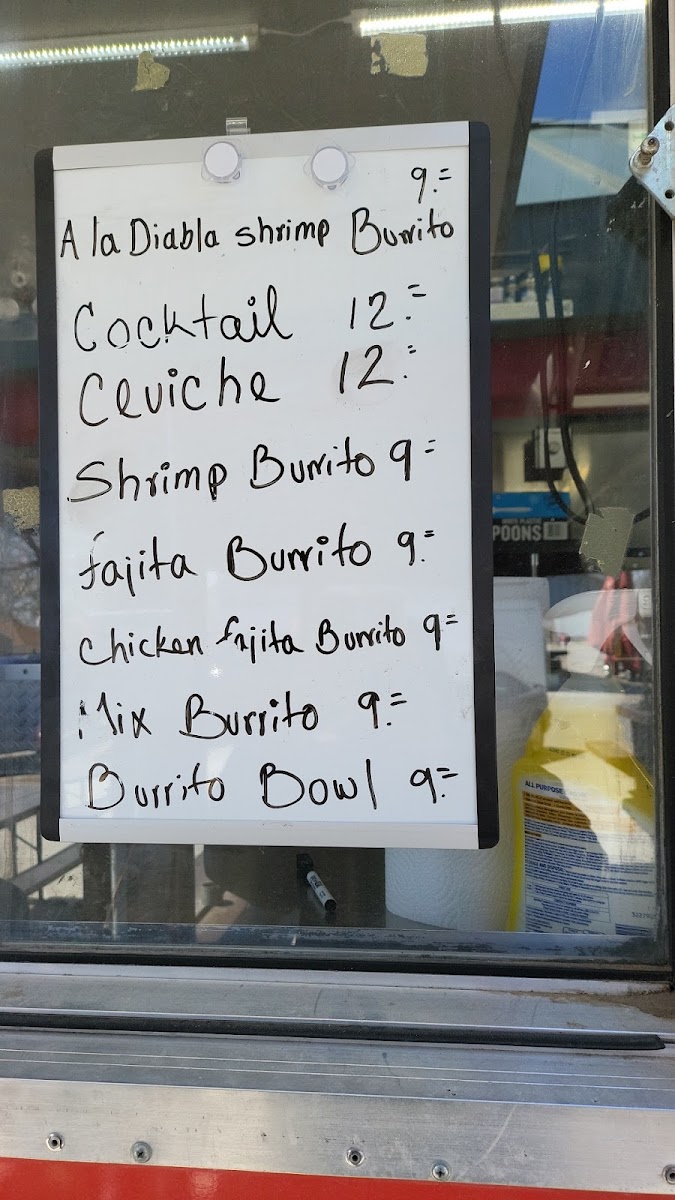 9.=
A la Diabla shrimp Burrito
Cocktail 12.=
Ceviche 12.=
Shrimp Burrito 9=
fajita Burrito 9.=
Chicken fajita Burrito 9=
Mix Burrito 9.=
Burrito Bowl 9.=
POONS
ALL PURPOSE